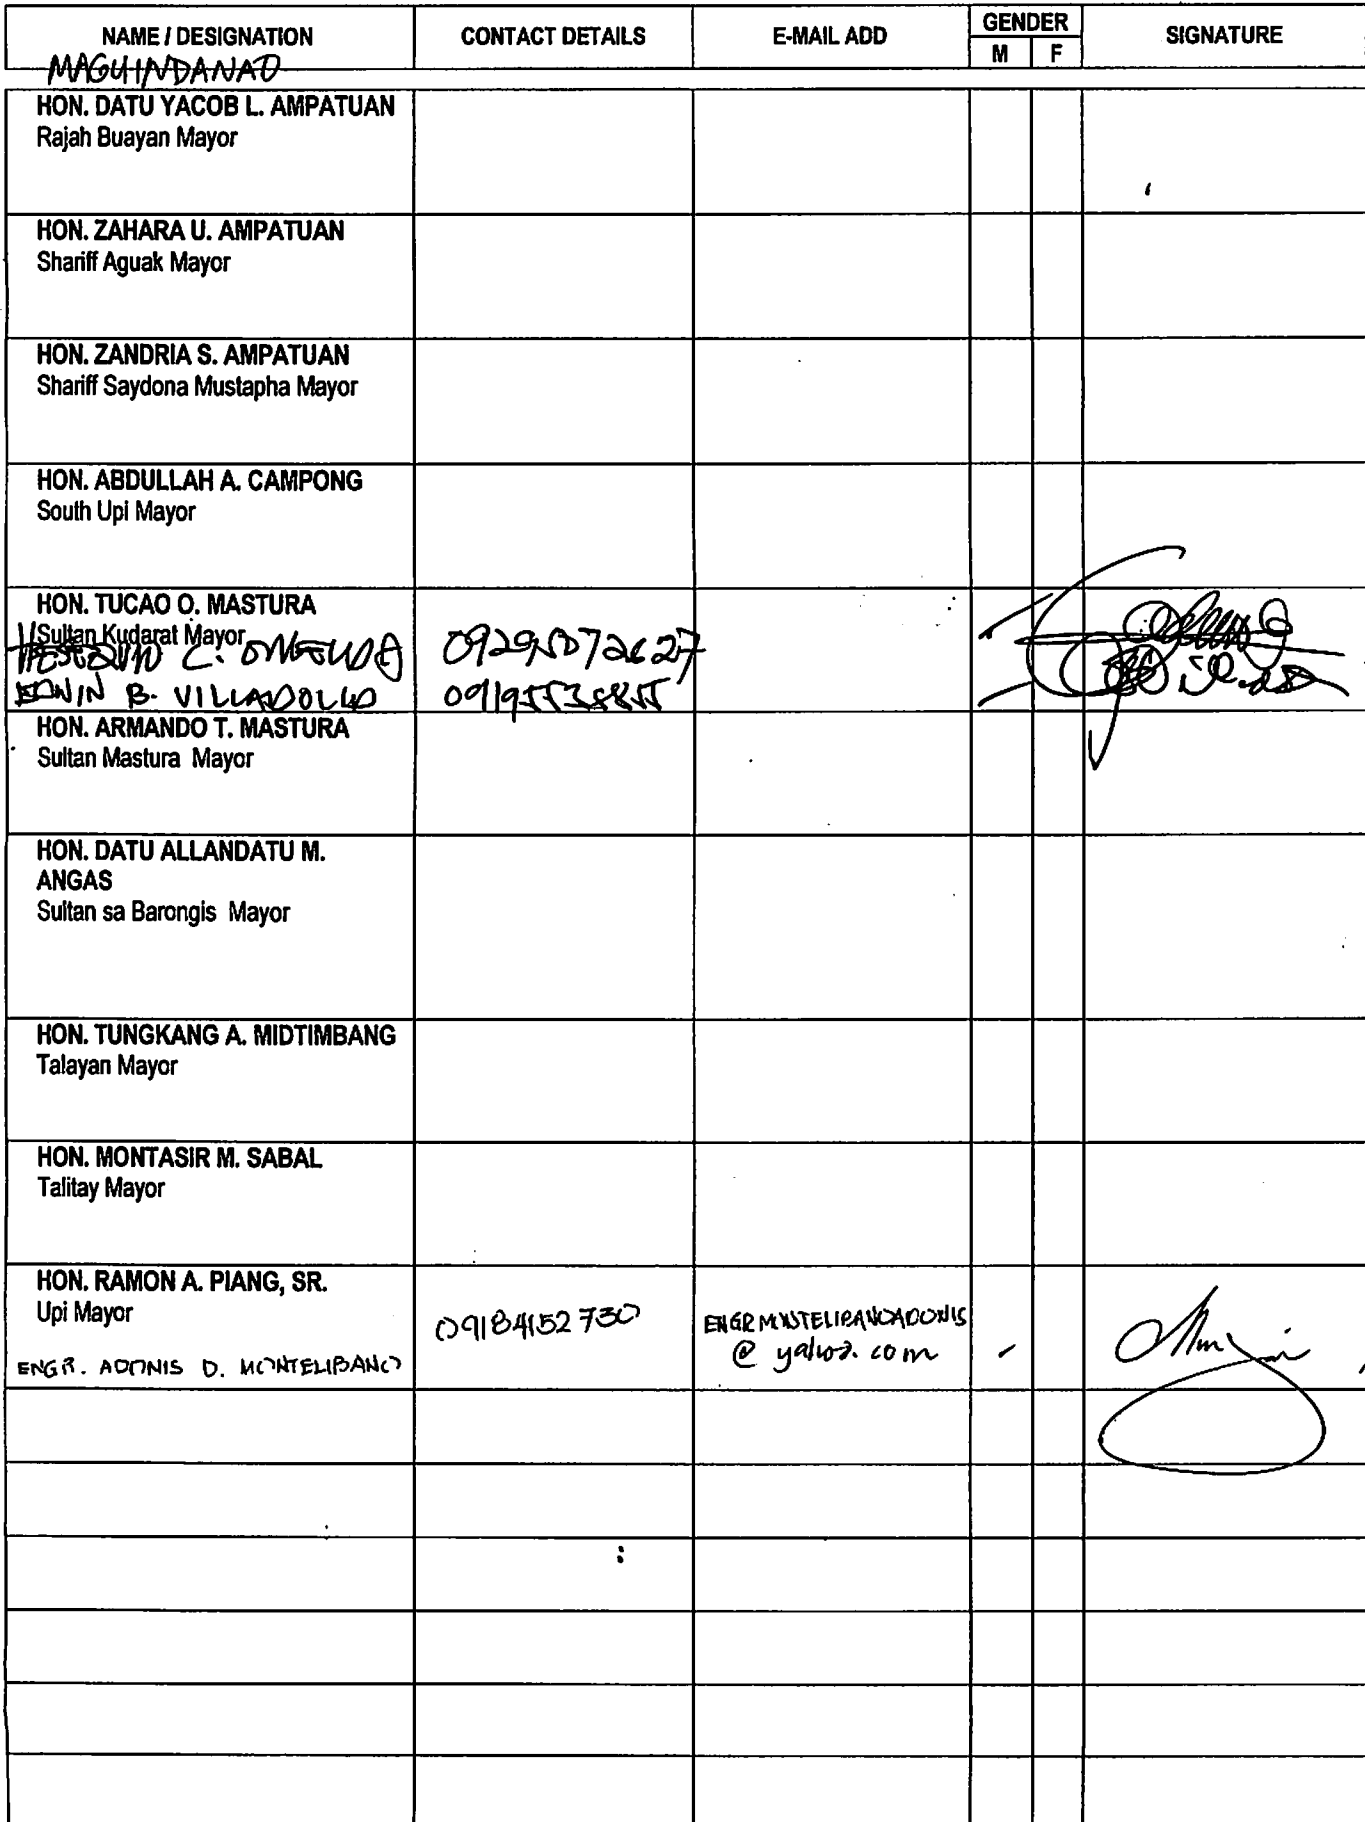 NAME / DESIGNATION
CONTACT DETAILS
E-MAIL ADD
GENDER
M F
SIGNATURE
MAGUINDANAO
HON. DATU YACOB L. AMPATUAN
Rajah Buayan Mayor
HON. ZAHARA U. AMPATUAN
Shariff Aguak Mayor
HON. ZANDRIA S. AMPATUAN
Shariff Saydona Mustapha Mayor
HON. ABDULLAH A. CAMPONG
South Upi Mayor
HON. TUCAO O. MASTURA
Sultan Kudarat Mayor
C.
EDWIN B. VILLADOLID
HON. ARMANDO T. MASTURA
Sultan Mastura Mayor
HON. DATU ALLANDATU M.
ANGAS
Sultan sa Barongis Mayor
HON. TUNGKANG A. MIDTIMBANG
Talayan Mayor
HON. MONTASIR M. SABAL
Talitay Mayor
HON. RAMON A. PIANG, SR.
Upi Mayor
ENGR. ADONIS D. MONTELIBANO
09184152730
ENGRMONTELIBANOADONIS
@ yahoo.com